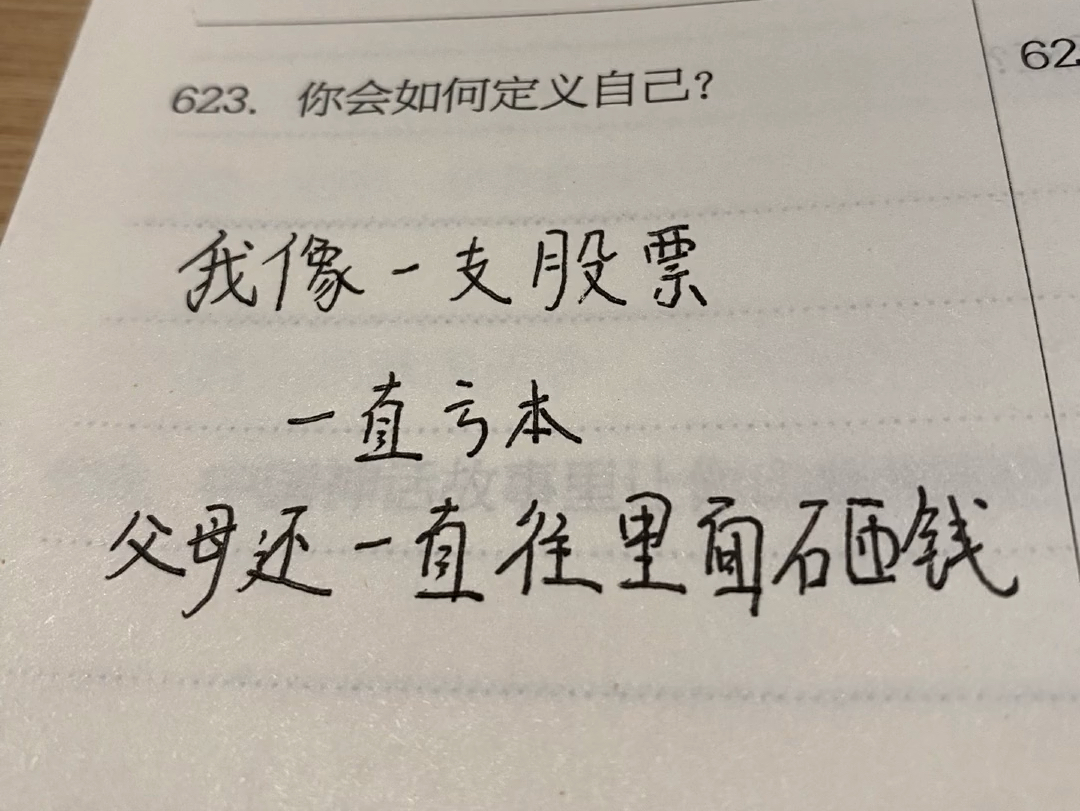 623. 你会如何定义自己？
62
我像一支股票
一直亏本
父母还一直往里面砸钱